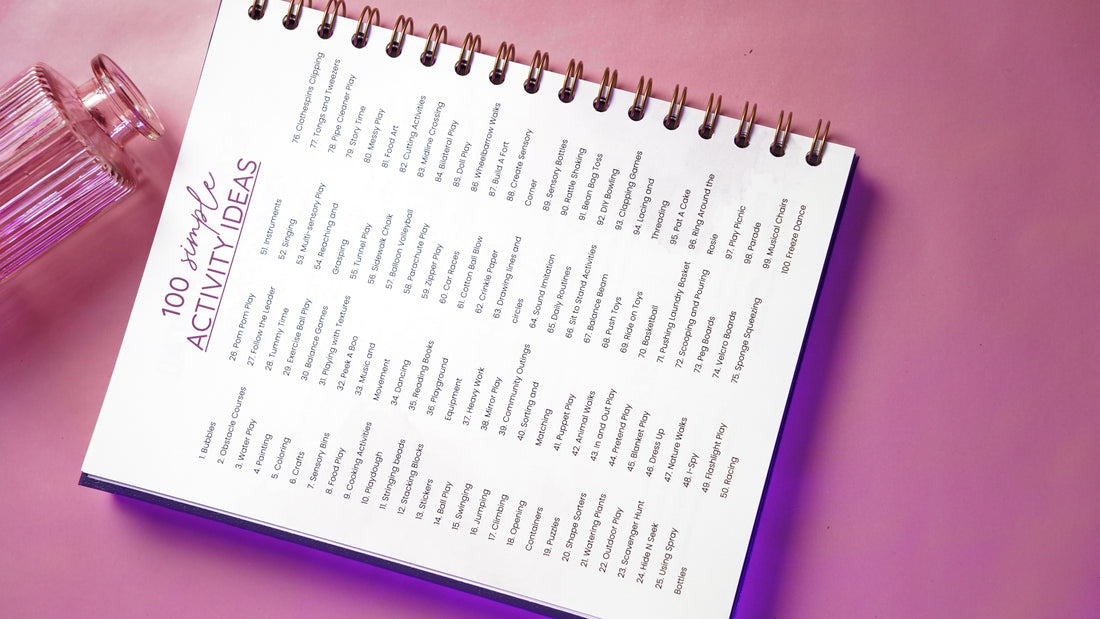 100 simple
ACTIVITY IDEAS
1. Bubbles
2. Obstacle Courses
3. Water Play
4. Painting
5. Coloring
6. Crafts
7. Sensory Bins
8. Food Play
9. Cooking Activities
10. Playdough
11. Stringing beads
12. Stacking Blocks
13. Stickers
14. Ball Play
15. Swinging
16. Jumping
17. Climbing
18. Opening
Containers
19. Puzzles
20. Shape Sorters
21. Watering Plants
22. Outdoor Play
23. Scavenger Hunt
24. Hide N Seek
25. Using Spray
Bottles
26. Pom Pom Play
27. Follow the Leader
28. Tummy Time
29. Exercise Ball Play
30. Balance Games
31. Playing with Textures
32. Peek A Boo
33. Music and
Movement
34. Dancing
35. Reading Books
36. Playground
Equipment
37. Heavy Work
38. Mirror Play
39. Community Outings
40. Sorting and
Matching
41. Puppet Play
42. Animal Walks
43. In and Out Play
44. Pretend Play
45. Blanket Play
46. Dress Up
47. Nature Walks
48. I-Spy
49. Flashlight Play
50. Racing
51. Instruments
52. Singing
53. Multi-sensory Play
54. Reaching and
Grasping
55. Tunnel Play
56. Sidewalk Chalk
57. Balloon Volleyball
58. Parachute Play
59. Zipper Play
60. Car Races
61. Cotton Ball Blow
62. Crinkle Paper
63. Drawing lines and
circles
64. Sound Imitation
65. Daily Routines
66. Sit to Stand Activities
67. Balance Beam
68. Push Toys
69. Ride on Toys
70. Basketball
71. Pushing Laundry Basket
72. Scooping and Pouring
73. Peg Boards
74. Velcro Boards
75. Sponge Squeezing
76. Clothespins Clipping
77. Tongs and Tweezers
78. Pipe Cleaner Play
79. Story Time
80. Messy Play
81. Food Art
82. Cutting Activities
83. Midline Crossing
84. Bilateral Play
85. Doll Play
86. Wheelbarrow Walks
87. Build A Fort
88. Create Sensory
Corner
89. Sensory Bottles
90. Rattle Shaking
91. Bean Bag Toss
92. DIY Bowling
93. Clapping Games
94. Lacing and
Threading
95. Pat A Cake
96. Ring Around the
Rosie
97. Play Picnic
98. Parade
99. Musical Chairs
100. Freeze Dance